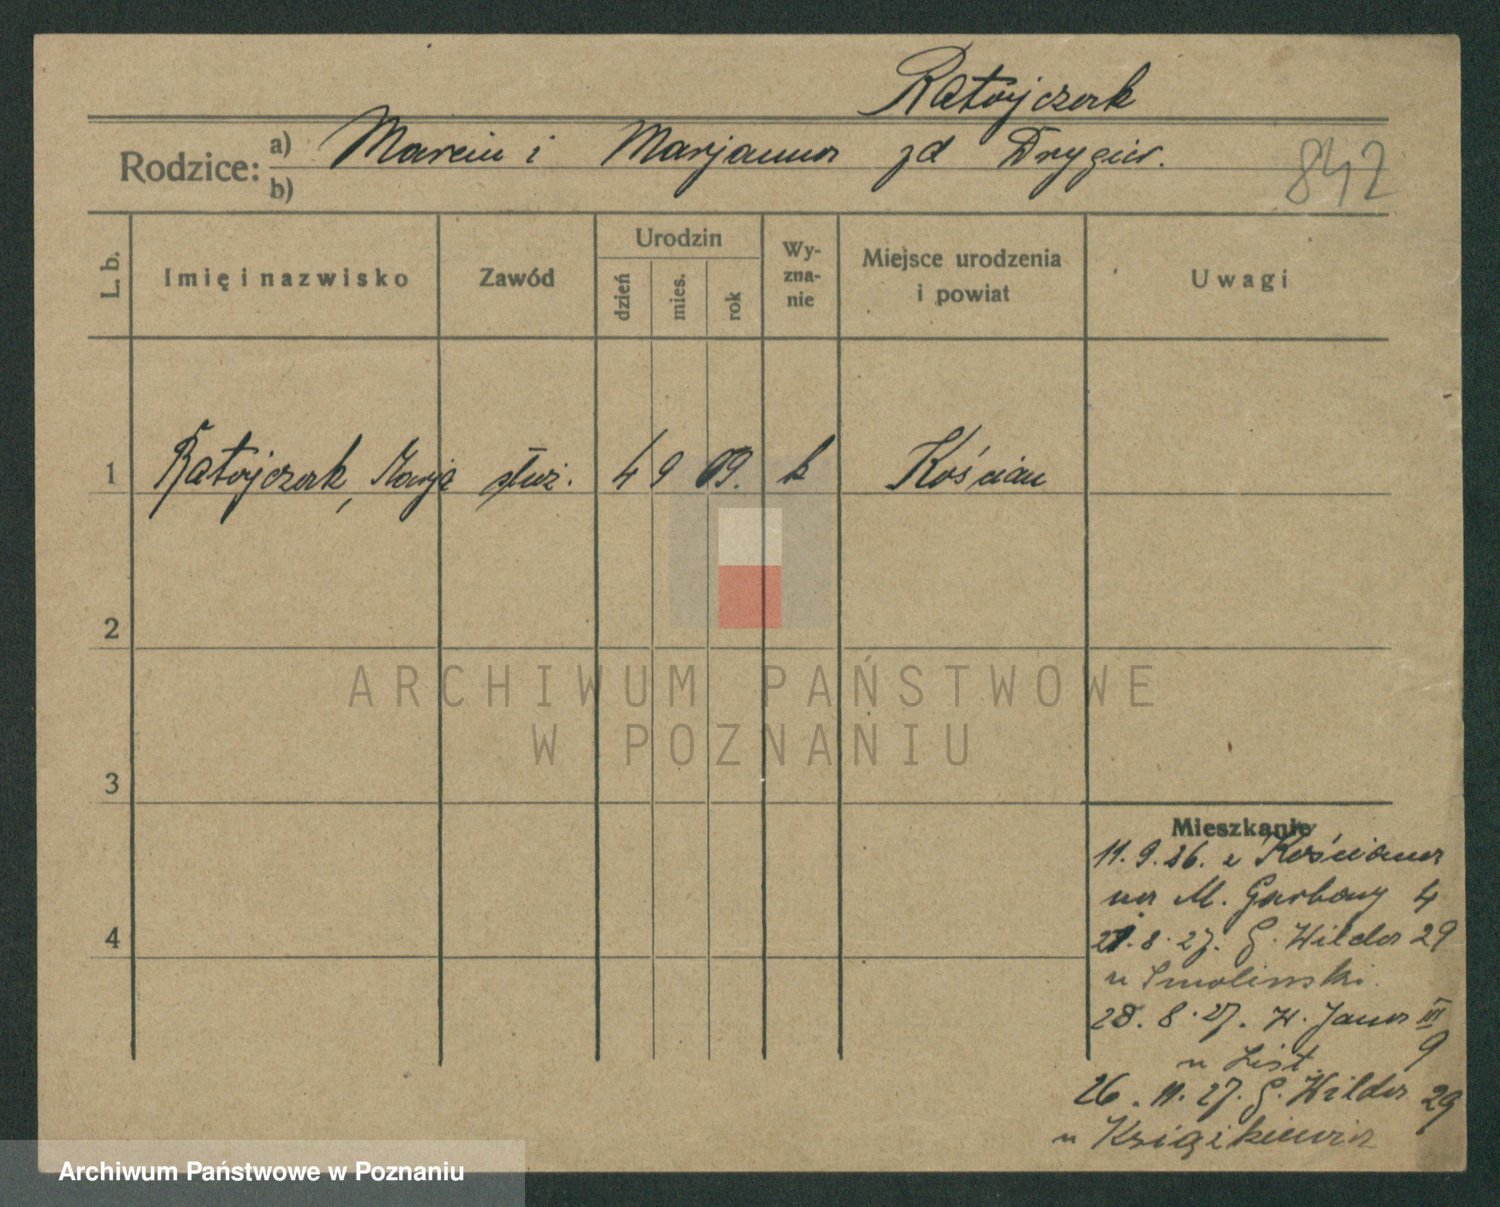 Ratajczak
Rodzice: a) Marcin i Marjanna zd Drygier.
b)
842
L. b.
Imię i nazwisko
Zawód
Urodzin
dzień
mies.
rok
Wy-
zna-
nie
Miejsce urodzenia
i powiat
Uwagi
1 Ratajczak, Marja służ. 4 9 09. k Kościan
2
ARCHIWUM PAŃSTWOWE
W POZNANIU
3
4
Mieszkanie
11. 9. 26. z Kościana
na M. Garbary 4
21. 8. 27. G. Wilda 29
u Smolinski.
28. 8. 27. W. Jana III
9
u List.
26. 11. 27. G. Wilda 29
u Książkiewicz
Archiwum Państwowe w Poznaniu